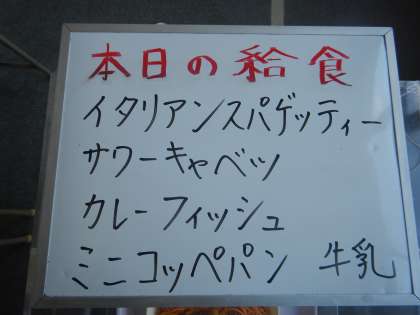 本日の給食
イタリアンスパゲッティー
サワーキャベツ
カレーフィッシュ
ミニコッペパン 牛乳